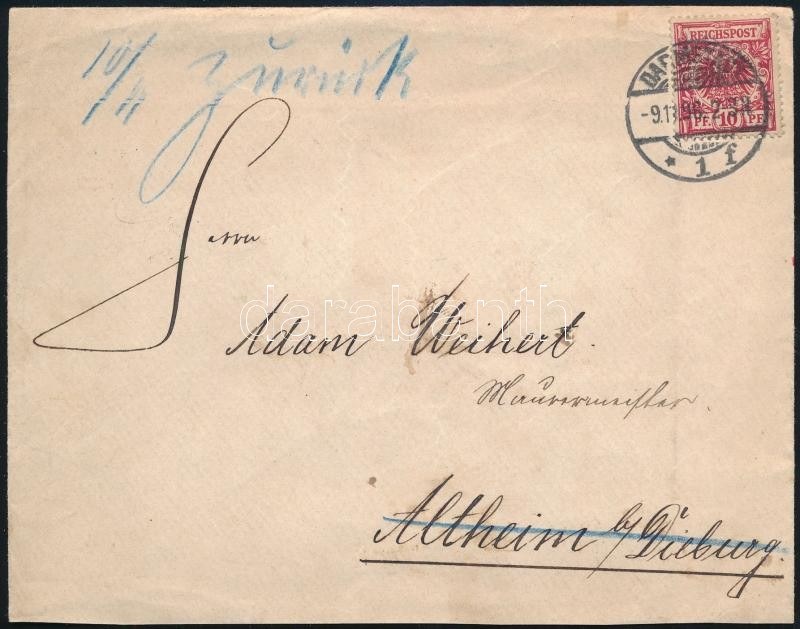 REICHSPOST
10/11 Zurück
PF. 10 PF.
* 1 f
Herrn
Adam Weihert.
darabanth
Maurermeister.
Altheim b/Dieburg.